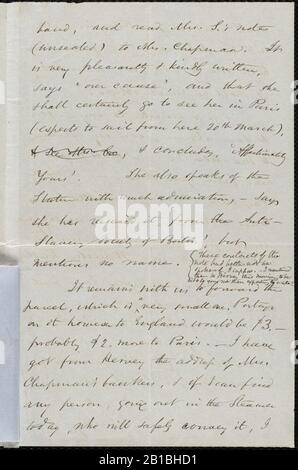 hand, and read Mrs. S.'s note
(unsealed) to Mrs. Chapman. It
is very pleasantly & kindly written,
says "our cause", and that she
shall certainly go to see her in Paris
(expects to sail from here 20th March),
&
& concludes, 'Affectionately
Yours'. She also speaks of the
Statue with much admiration, – says
she has it from the Anti-
Slavery Society of Boston', but
mentions no name.
(These contents of the
note
It remains with us to forward the
parcel, which is very small one. Postage
on it homeward to England would be $3, –
probably $2. more to Paris. – I have
got from Hervey the address of Mrs.
Chapman's bankers, & if I can find
any person, going out in the Steamer
today, who will safely convey it, I
2B1BHD1